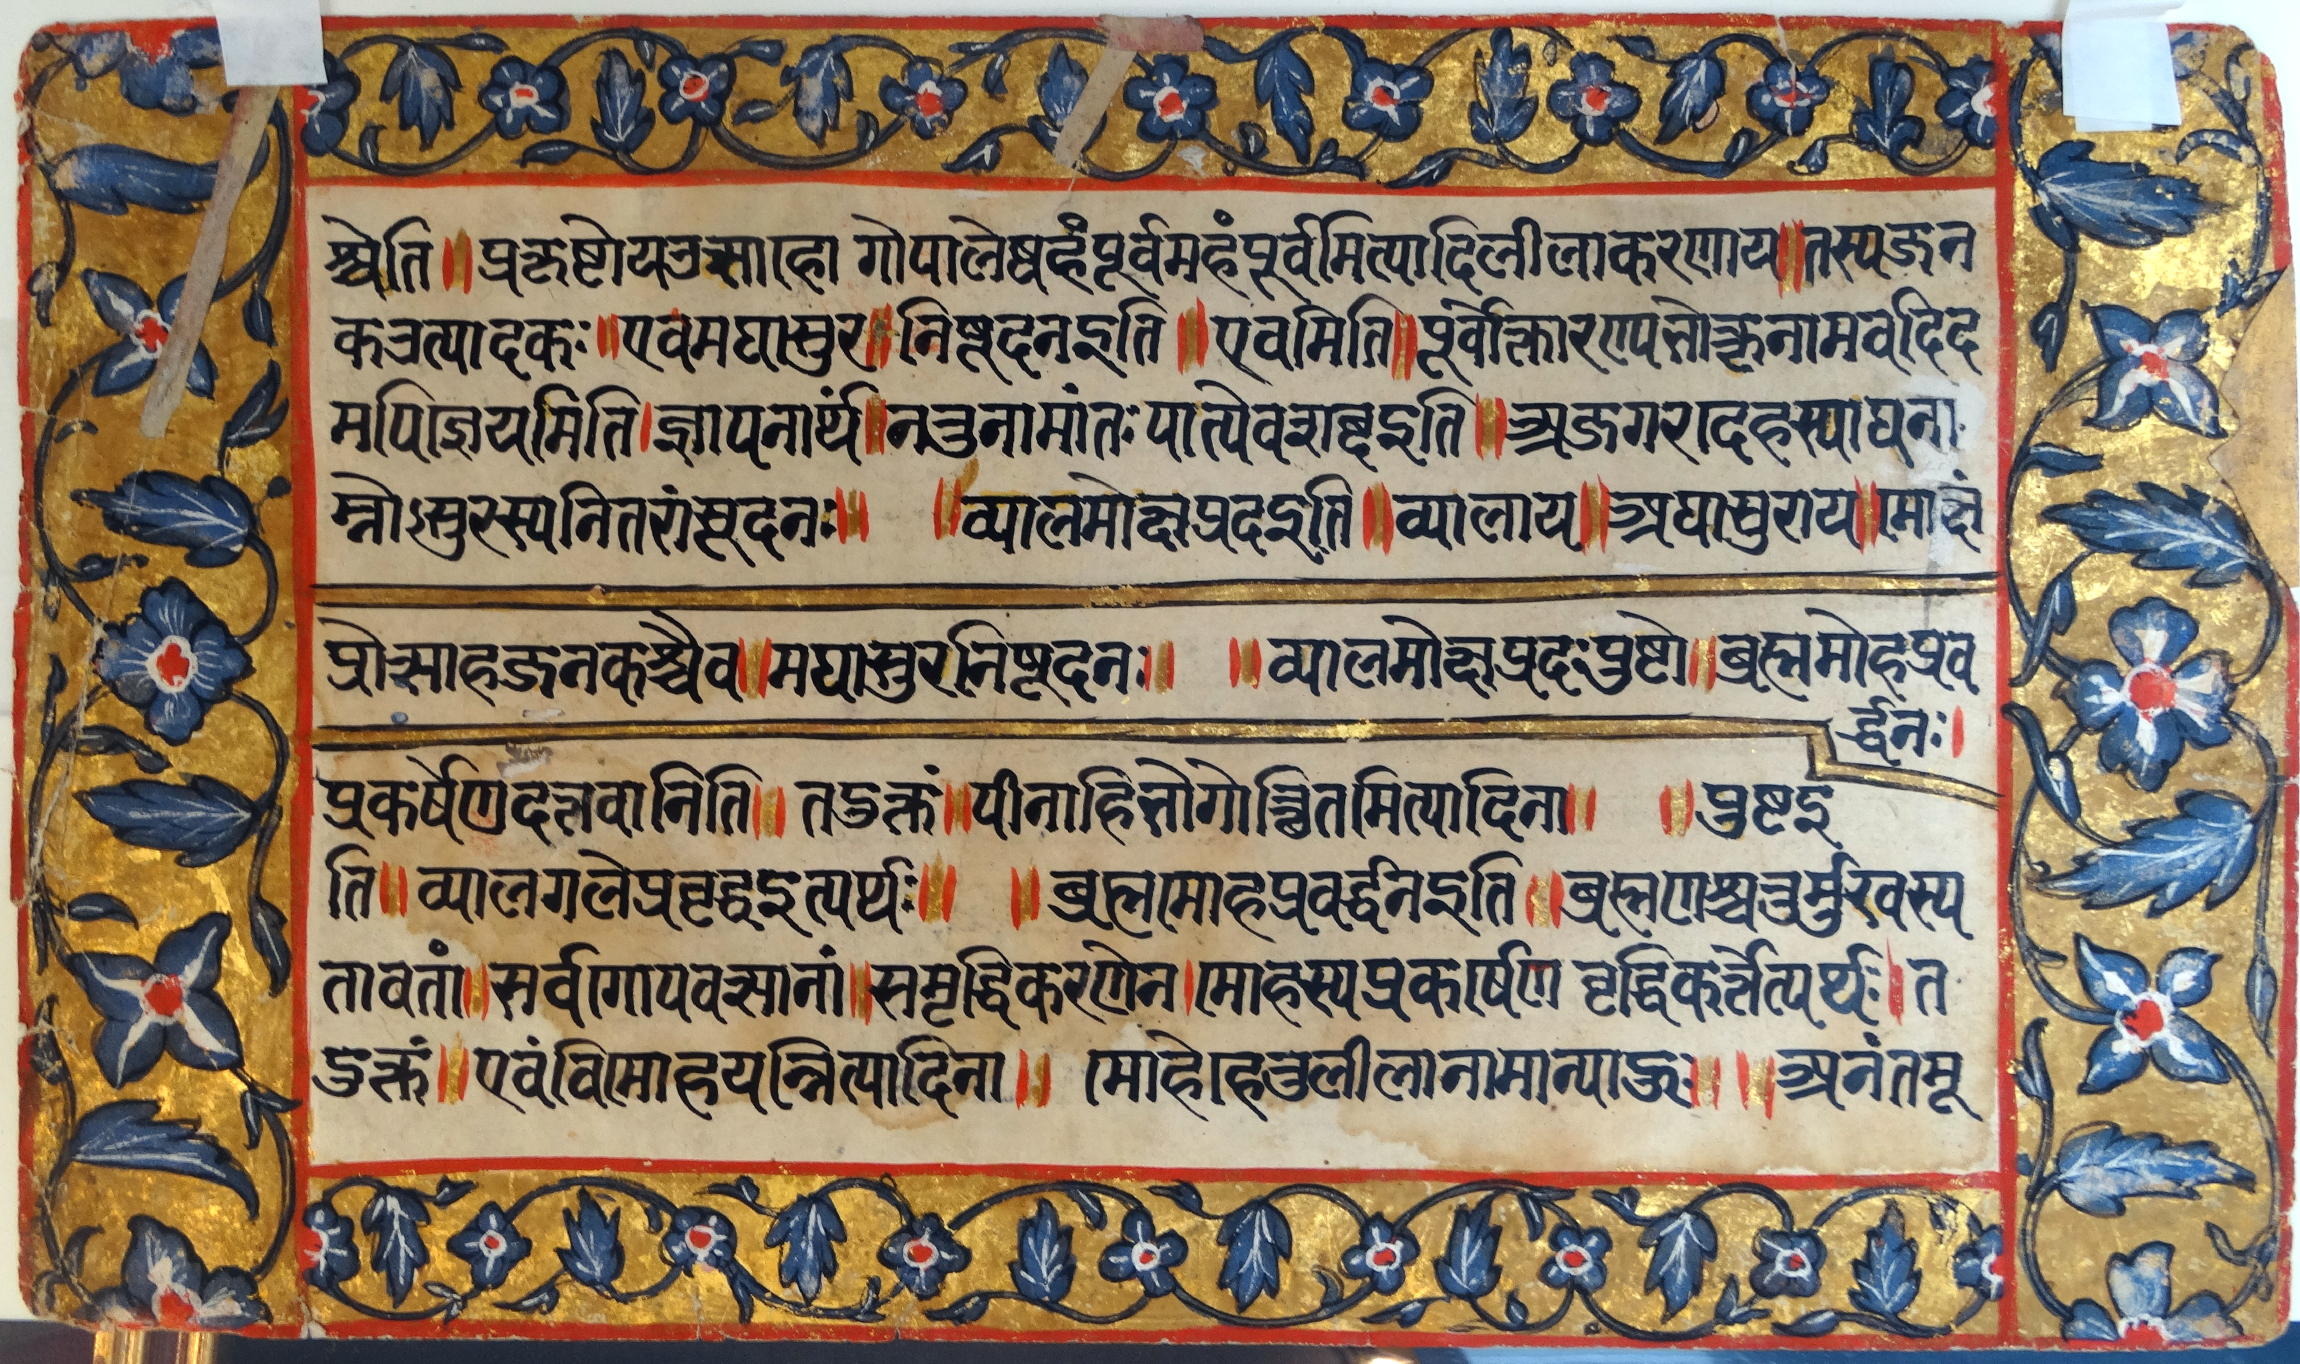 श्चेति ॥ प्रकृष्टोयउत्साहो गोपालेष्वहंपूर्वमहंपूर्वमित्यादिलीलाकरणाय ॥ तस्यजन
कउत्पादकः ॥ एवमघासुर ॥ निषूदनइति ॥ एवमिति ॥ पूर्वोक्ता
मपिज्ञेयमिति । ज्ञापनार्थं ॥ नतुनामांतःपात्येवशब्दइति ॥ अजगरादेहस्याघना
म्नोऽसुरस्यनितरांसूदनः ॥ ॥ व्यालमोक्षप्रदइति ॥ व्यालाय ॥ अघासुराय ॥ मोक्षं
प्रोत्साहजनकश्चैव ॥ मघासुरनिषूदनः ॥ ॥ व्यालमोक्षप्रदःपुष्टो ॥ ब्रह्ममोहप्रव
र्द्धनः ।
प्रकर्षेणदत्तवानिति ॥ तदुक्तं ॥ पीनाहिभोगोच्छ्रितमित्यादिना ॥ ॥ पुष्टइ
ति ॥ व्यालगलेप्रवृद्धइत्यर्थः ॥ ॥ ब्रह्ममोहप्रवर्द्धनइति ॥ ब्रह्मणश्चतुर्मुखस्य
तावतां ॥ सर्वगोपवत्सानां ॥ समृद्धिकरणेन । मोहस्यप्रकर्षेण वृद्धिकर्त्तेत्यर्थः । त
दुक्तं ॥ एवंविमोहयन्नित्यादिना ॥ मोहेहेतुलीलानामान्याहुः ॥ ॥ अनंतमू